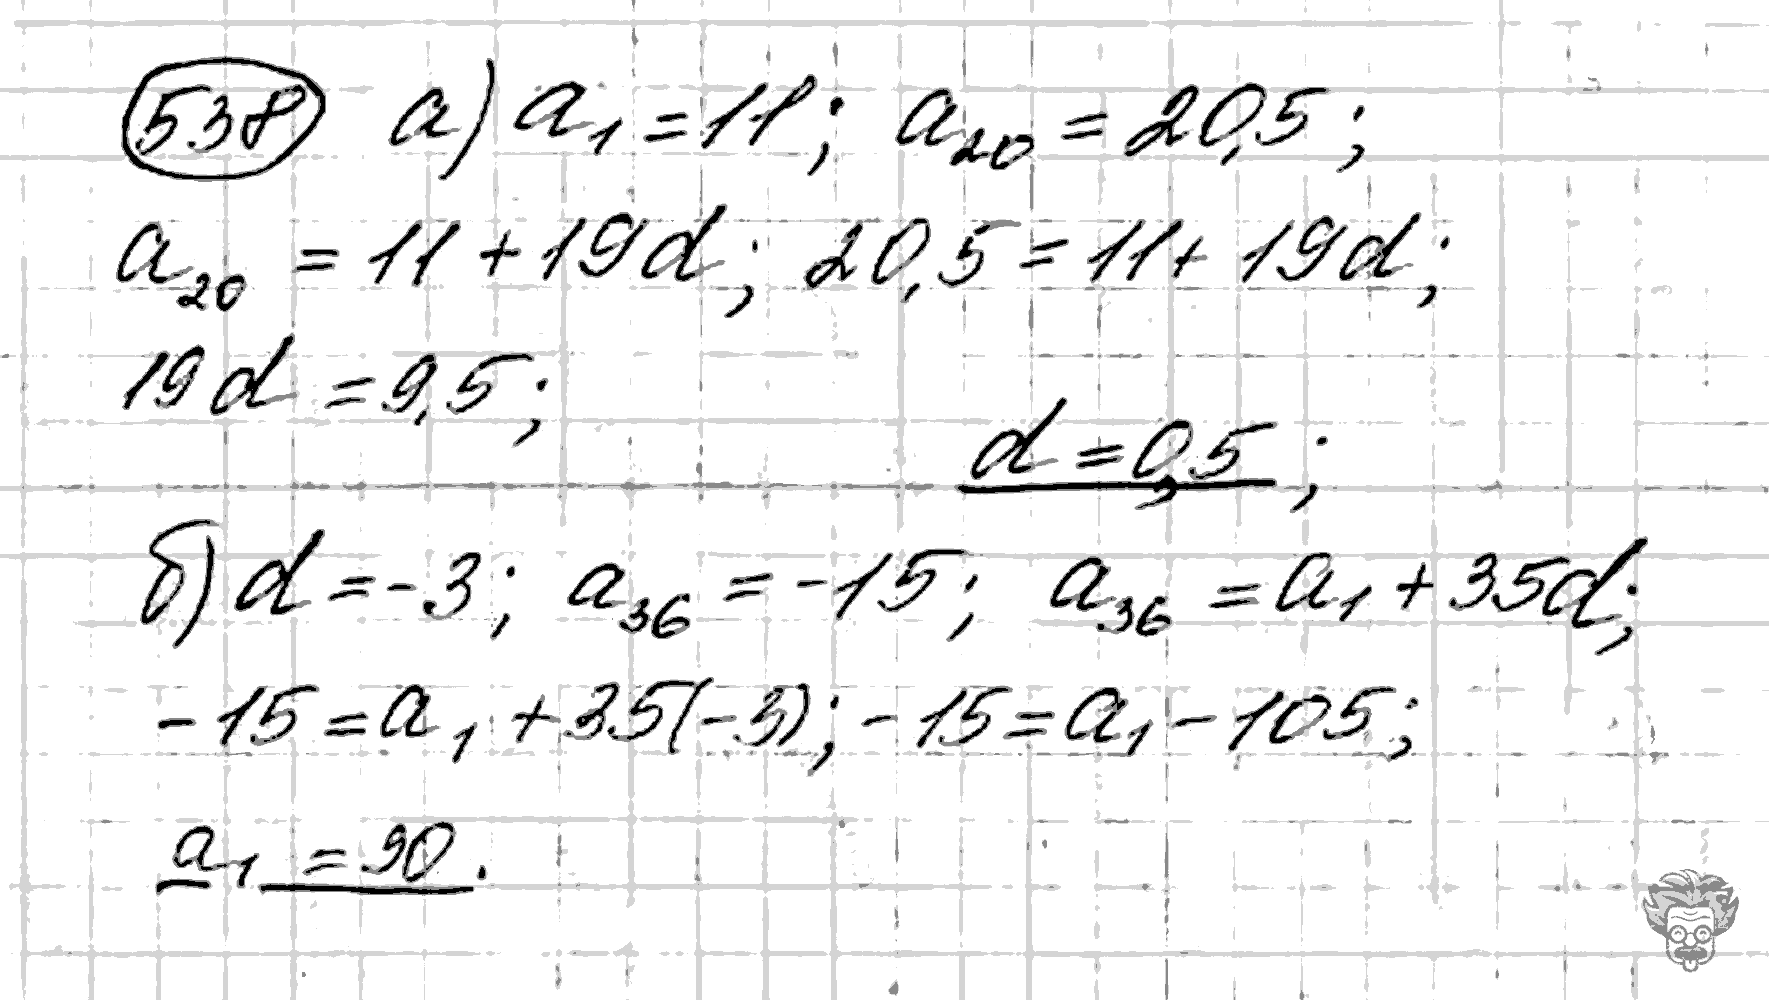 538 а) a₁ = 11; a₂₀ = 20,5;
a₂₀ = 11 + 19d; 20,5 = 11 + 19d;
19d = 9,5;
d = 0,5;
б) d = -3; a₃₆ = -15; a₃₆ = a₁ + 35d;
-15 = a₁ + 35(-3); -15 = a₁ - 105;
a₁ = 90.